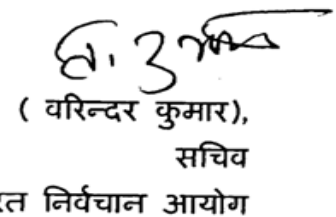 ( वरिन्दर कुमार),
सचिव
निर्वचान आयोग